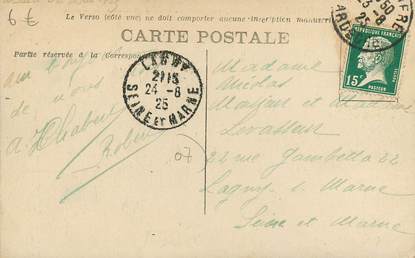 6 €
Le Verso (côté vue) ne doit comporter aucune inscription manuscrite
CARTE POSTALE
Partie réservée à la Correspondance
LAGNY
21 15
24-8
25
SEINE ET MARNE
RÉPUBLIQUE FRANÇAISE
15c
PASTEUR
07
de nous
Robert
Madame
Nicolas
Masseur et Madame
Levasseur
22 rue Gambetta 22
Lagny s. Marne
Seine et Marne